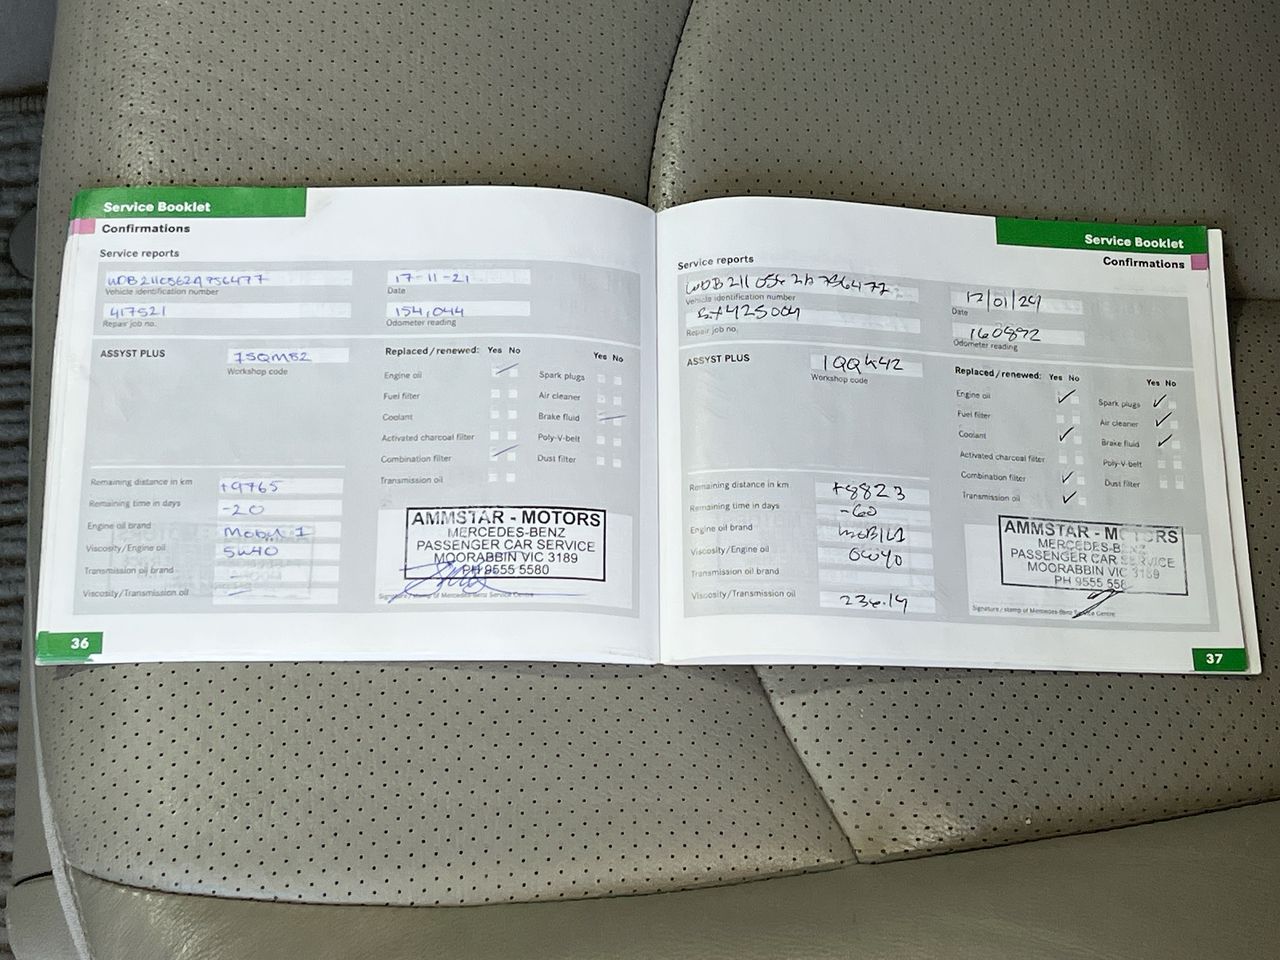 Service Booklet
Confirmations
Service reports
Vehicle identification number
17-11-21
Date
417521
Repair job no.
154,044
Odometer reading
ASSYST PLUS
7SQM82
Workshop code
Replaced/renewed: Yes No Yes No
Engine oil
Spark plugs
Fuel filter
Air cleaner
Coolant
Brake fluid
Activated charcoal filter
Poly-V-belt
Combination filter
Dust filter
Transmission oil
Remaining distance in km +9765
Remaining time in days -20
Engine oil brand Mobil 1
Viscosity/Engine oil 5W40
Transmission oil brand
Viscosity/Transmission oil
AMMSTAR - MOTORS
MERCEDES-BENZ
PASSENGER CAR SERVICE
MOORABBIN VIC 3189
PH 9555 5580
Signature/stamp of Mercedes-Benz Service Centre
36
Service Booklet
Confirmations
Service reports
Vehicle identification number
12/01/24
Date
Repair job no.
160892
Odometer reading
ASSYST PLUS
1QQK42
Workshop code
Replaced/renewed: Yes No Yes No
Engine oil
Spark plugs
Fuel filter
Air cleaner
Coolant
Brake fluid
Activated charcoal filter
Poly-V-belt
Combination filter
Dust filter
Transmission oil
Remaining distance in km +8823
Remaining time in days -60
Engine oil brand
Viscosity/Engine oil 0W40
Transmission oil brand
Viscosity/Transmission oil
AMMSTAR - MOTORS
MERCEDES-BENZ
PASSENGER CAR SERVICE
MOORABBIN VIC 3189
PH 9555 558
Signature/stamp of Mercedes-Benz Service Centre
37